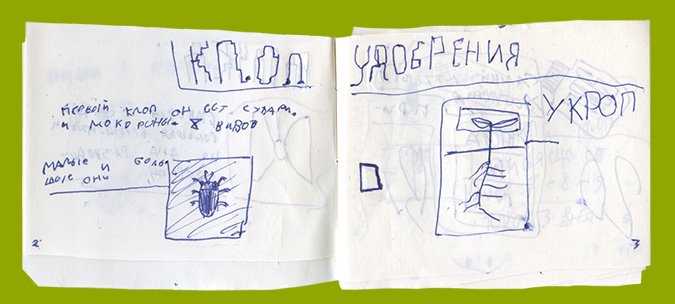 КЛОП
первый клоп он ест сухари
и макороны 8 видов
малые и больш
шые они
2
УДОБРЕНИЯ
УКРОП
3